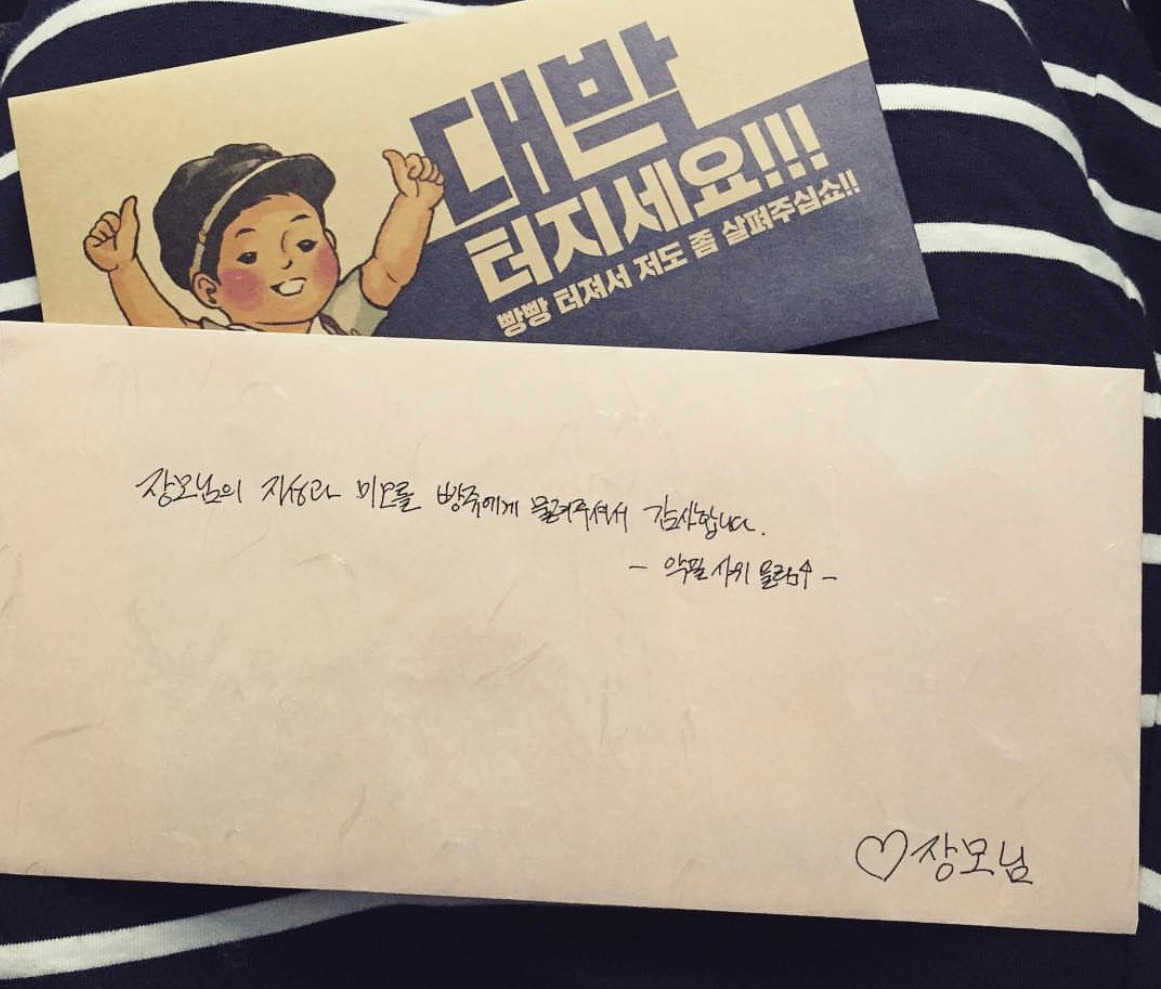 대박
터지세요!!!
빵빵 터져서 저도 좀 살펴주십쇼!!
장모님의 지성과 미모를 방쥬에게 물려주셔서 감사합니다.
- 악필 사위 올림 -
♡장모님